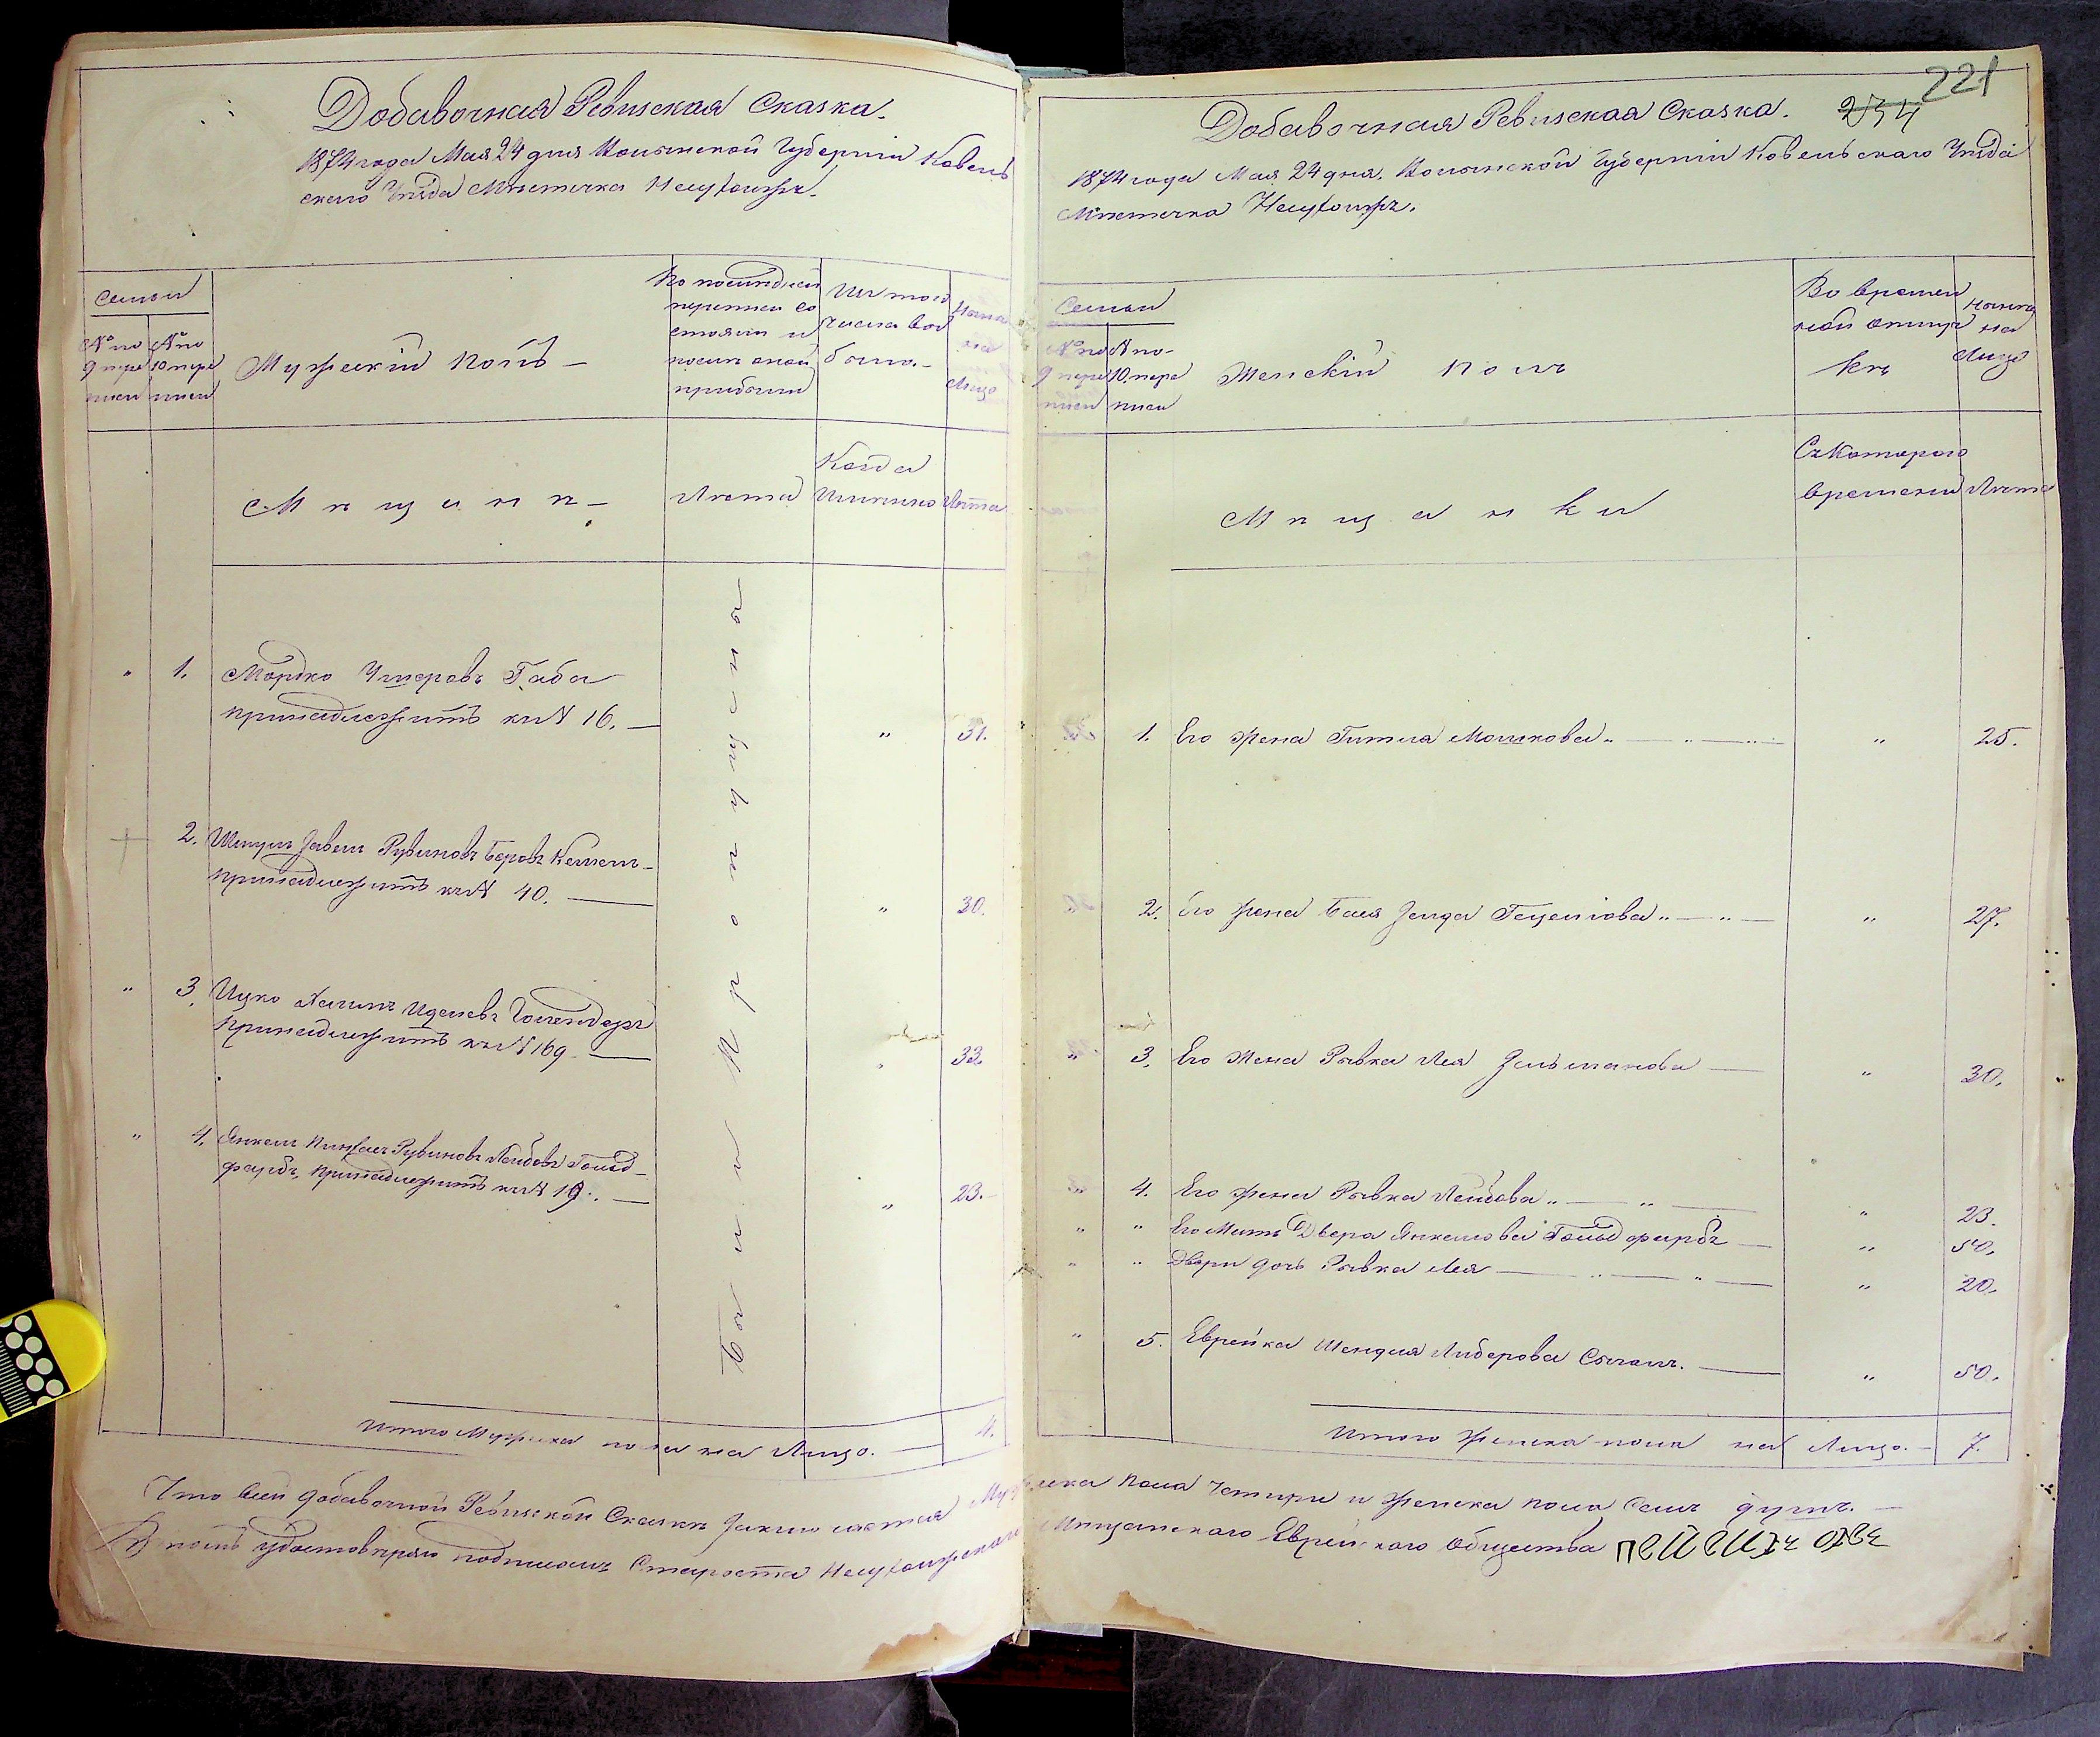 Добавочная Ревизская Сказка.
1874 года Мая 24 дня Волынской Губерніи Ковель
скаго Уѣзда Мѣстечка Несухоиже.
Семьи
№ по 9 пере писи
№ по 10 пере писи
Мужескій полъ
По последней переписи со стояли и после оной прибыли
Изъ того числа вы было.
Ныне на Лицо
Мѣщане
Лета
Когда Имянно
Лета
Были Пропущены
1. Мордко Умеровъ Габа
принадлежитъ къ № 16. — " 31.
2. Шмуль Завель Рувиновъ Беровъ
принадлежитъ къ № 40. — " 30.
3. Ицко Хаимъ Иделевъ
принадлежитъ къ № 169 — " 33.
4. Янкель Пинхасъ Рувиновъ Лейбовъ Гольд-
фарбъ, принадлежитъ къ № 19. — " 23.
Итого Мужеска пола на Лицо. — 4.
221
234
Добавочная Ревизская Сказка.
1874 года Мая 24 дня. Волынской Губерніи Ковельскаго Уѣзда
Мѣстечка Несухоиже.
Семьи
№ по 9 пере писи
№ по 10 пере писи
Женскій полъ
Во времен ной отлуч ке
Ныне на Лицо
Мѣщанки
Съ Котораго времени
Лета
1. Его жена Гитля Мошкова " 25.
2. Его жена Бася Зелда Гецелiова " 27.
3. Его Жена Рывка Лея Зельманова " 30.
4. Его жена Рывка Лейбова " 23.
" Его Мать Двера Янкелiова Гольдфарбъ " 50.
" Двери дочь Рывка Лея " 20.
5. Еврейка Шендля Либерова " 50.
Итого Женска пола на Лицо. — 7.
Что въ сей добавочной Ревизской Сказке заключается Мужеска пола четыри и женска пола семь душъ. —
В томъ удостоверяю подписомъ Староста Несухоижскаго Мѣщанскаго Еврейскаго Общества